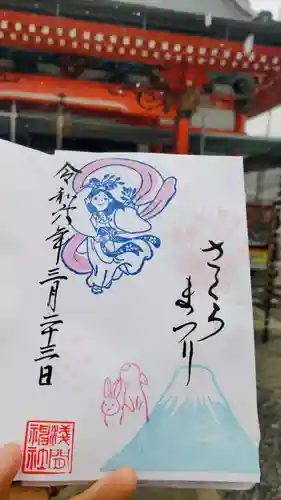 さくら
まつり
令和六年三月二十三日
浅間
神社